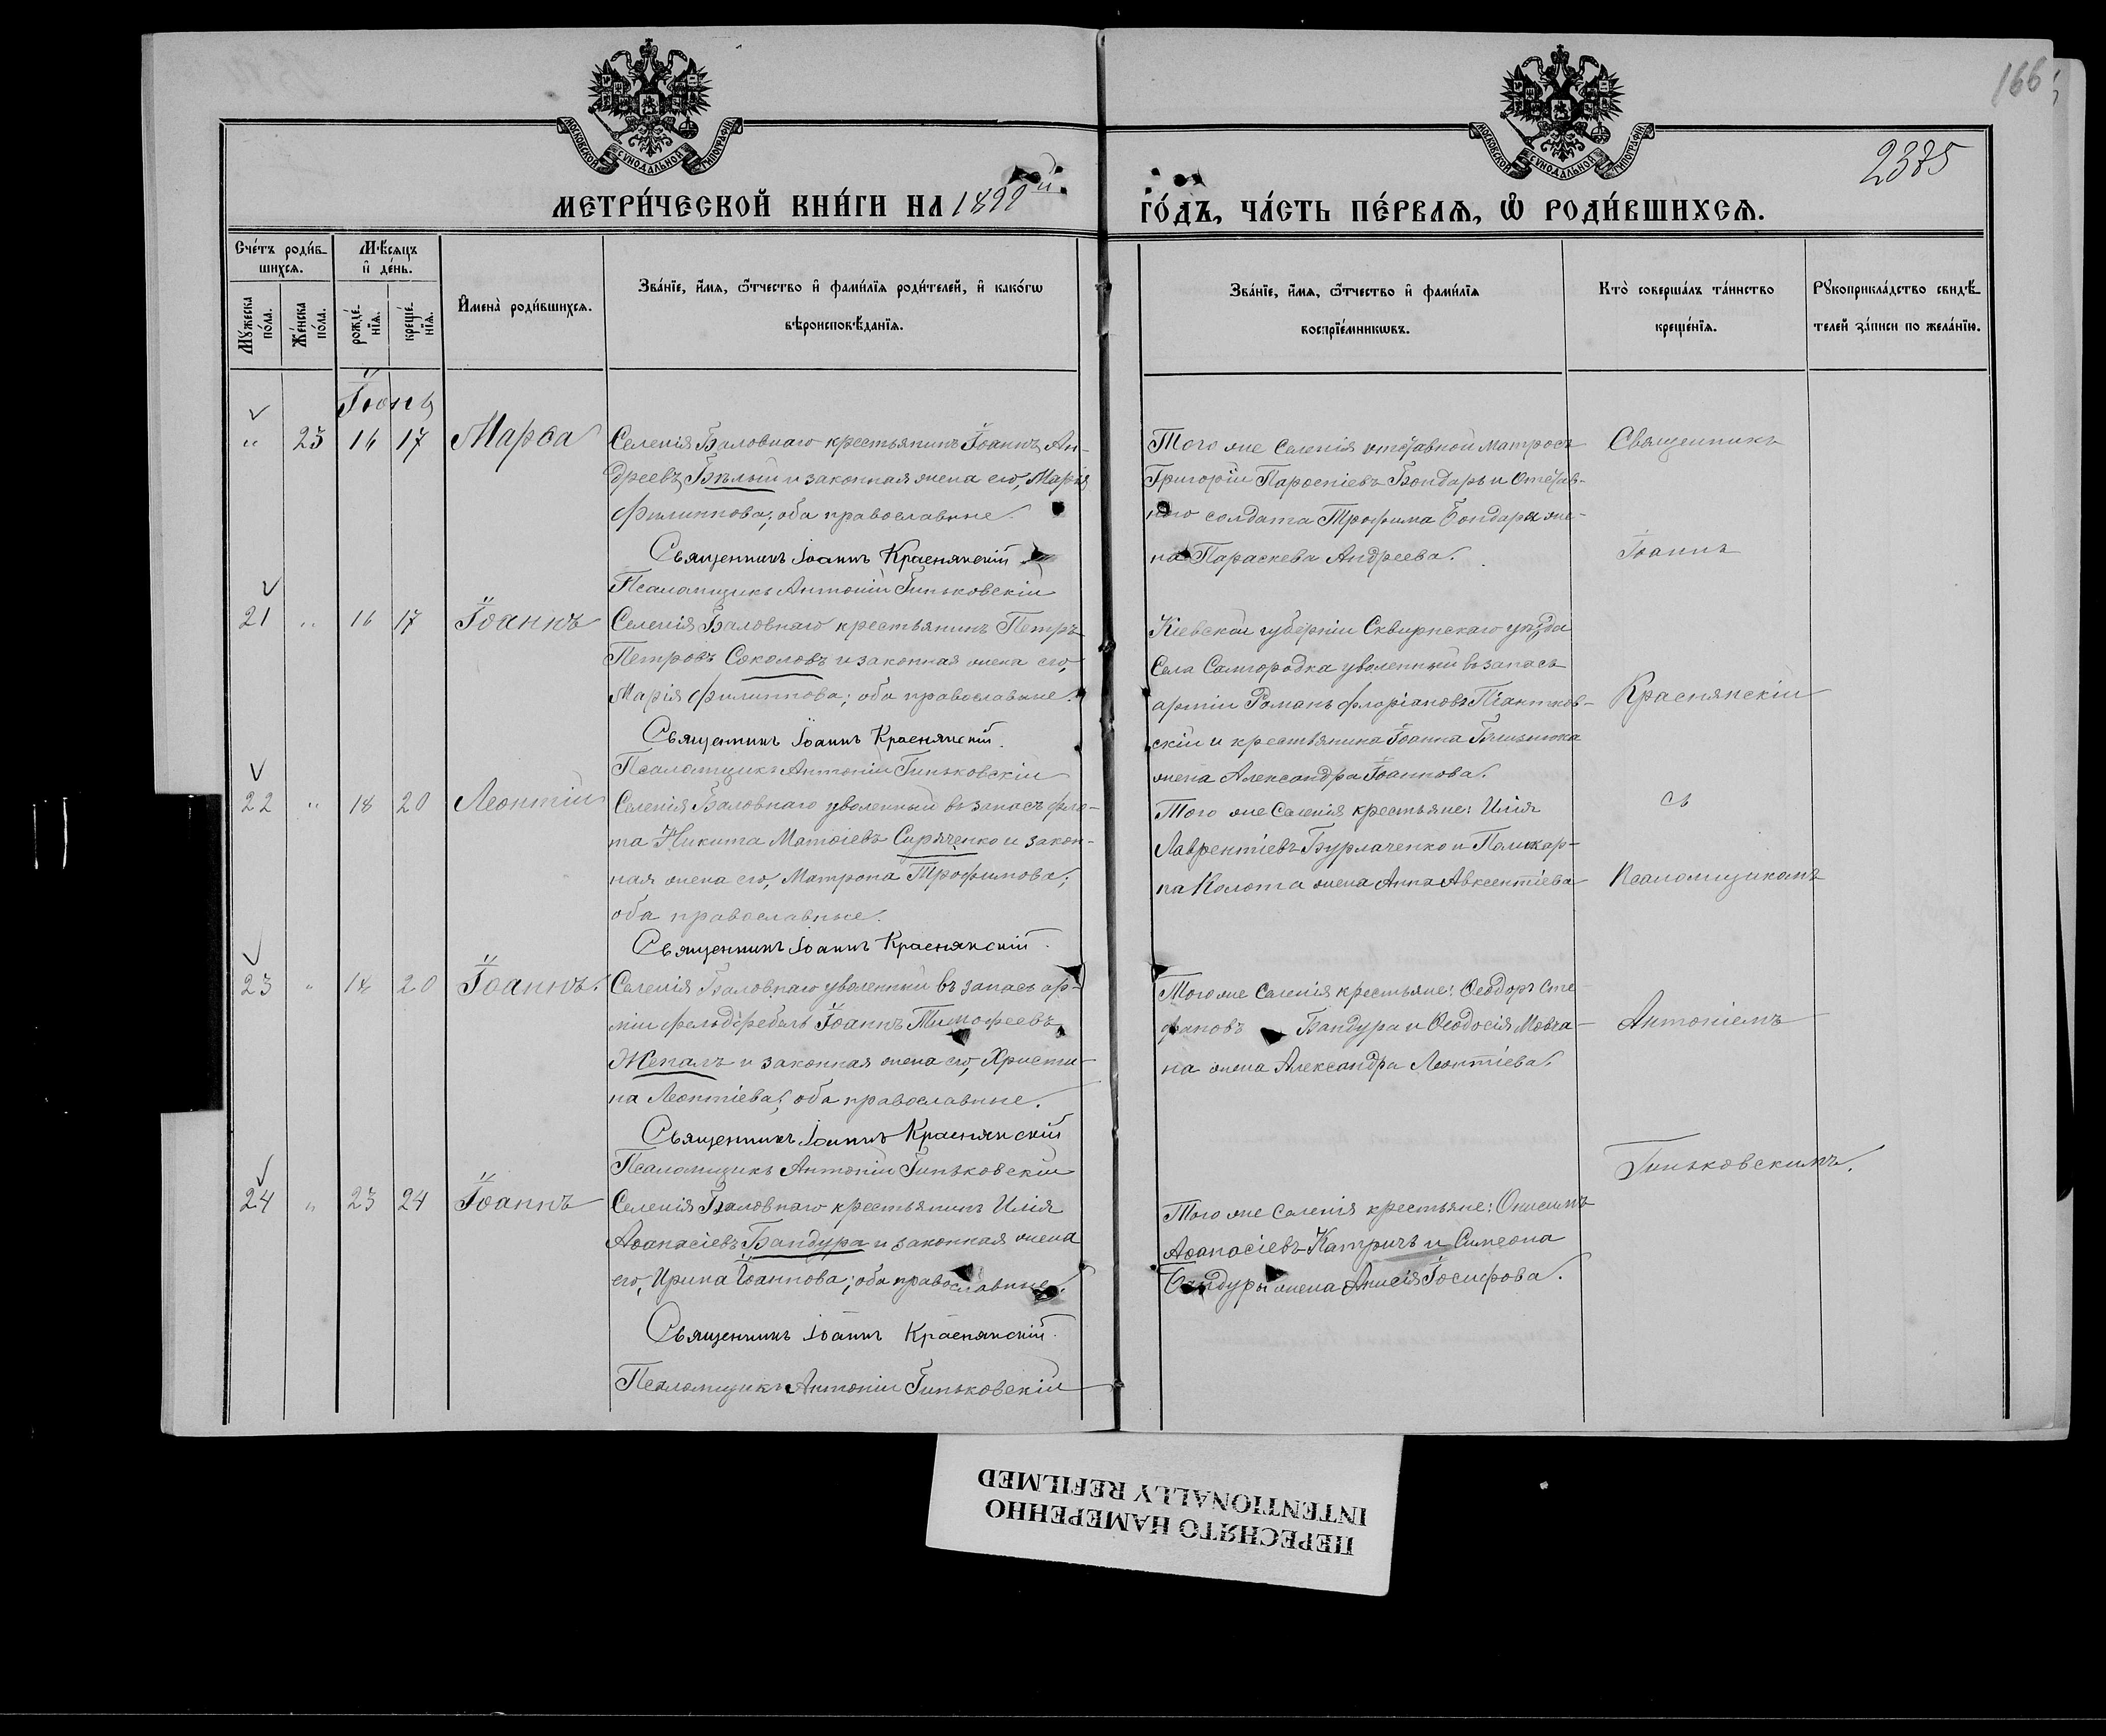 166
2375
МОСКОВСКОЙ СѴНОДАЛЬНОЙ ТИПОГРАФІИ
МОСКОВСКОЙ СѴНОДАЛЬНОЙ ТИПОГРАФІИ
МЕТРИ́ЧЕСКОЙ КНИ́ГИ НА 1899й
ГО́ДЪ, ЧА́СТЬ ПЕ́РВАЯ, Ѡ РОДИ́ВШИХСЯ.
Сче́тъ роди́в-
шихся.
Мѣ́сяцъ
и де́нь.
Мꙋ́жеска по́ла.
Же́нска по́ла.
рожде́-нїя.
креще́-нїя.
И҆мена̀ роди́вшихся.
Зва́нїе, и҆́мя, ѻ҆́тчество и҆ фами́лїя роди́телей, и҆ како́гѡ
вѣроисповѣ́данїя.
Зва́нїе, и҆́мя, ѻ҆́тчество и҆ фами́лїя
воспрїе́мникѡвъ.
Кто̀ соверша́лъ та́инство
креще́нїя.
Рꙋкоприкла́дство свидѣ́-
телей за́писи по жела́нїю.
Іюнь
" 25 16 17 Марѳа
Селенія Баловнаго крестьянинъ Іоаннъ Ан-
дреевъ Бѣлый и законная жена его, Марія
Филиппова; оба православные.
Священникъ Іоаннъ Краснянскій
Псаломщикъ Антоній Гиньковскій
Того же Селенія отставной матросъ
Григорій Пароеніевъ Бондарь и Отстав-
ного солдата Трофима Бондаря же-
на Параскева Андреева.
Священникъ
Іоаннъ
21 " 16 17 Іоаннъ
Селенія Баловнаго крестьянинъ Петръ
Петровъ Соколовъ и законная жена его,
Марія Филиппова; оба православные.
Священникъ Іоаннъ Краснянскій.
Псаломщикъ Антоній Гиньковскій
Кіевской губерніи Сквирнскаго уѣзда
Села Самгородка уволенный въ запасъ
арміи Романъ Флоріановъ Піантков-
скій и крестьянина Іоанна Близнюка
жена Александра Іоаннова.
Краснянскій
22 " 18 20 Леонтій
Селенія Баловнаго уволенный въ запасъ фло-
та Никита Матѳіевъ Сиряченко и закон-
ная жена его, Матрона Трофимова;
оба православные.
Священникъ Іоаннъ Краснянскій.
Того же Селенія крестьяне: Илія
Лаврентіевъ Бурлаченко и Поликар-
па Колота жена Анна Авксентіева
съ
Псаломщикомъ
23 " 18 20 Іоаннъ.
Селенія Баловнаго уволенный въ запасъ ар-
міи фельдфебель Іоаннъ Тимофеевъ
Жепалъ и законная жена его, Христи-
на Леонтіева; оба православные.
Священникъ Іоаннъ Краснянскій
Псаломщикъ Антоній Гиньковскій
Того же Селенія крестьяне: Ѳеодоръ Сте-
фановъ Бандура и Ѳеодосія Мовча-
на жена Александра Леонтіева.
Антоніемъ
Гиньковскимъ.
24 " 23 24 Іоаннъ
Селенія Баловнаго крестьянинъ Илія
Аѳанасіевъ Бандура и законная жена
его, Ирина Іоаннова; оба православные.
Священникъ Іоаннъ Краснянскій.
Псаломщикъ Антоній Гиньковскій
Того же Селенія крестьяне: Онисимъ
Аѳанасіевъ Катричъ и Симеона
Бандуры жена Анисія Іосифова.
ПЕРЕСНЯТО НАМЕРЕННО
INTENTIONALLY REFILMED